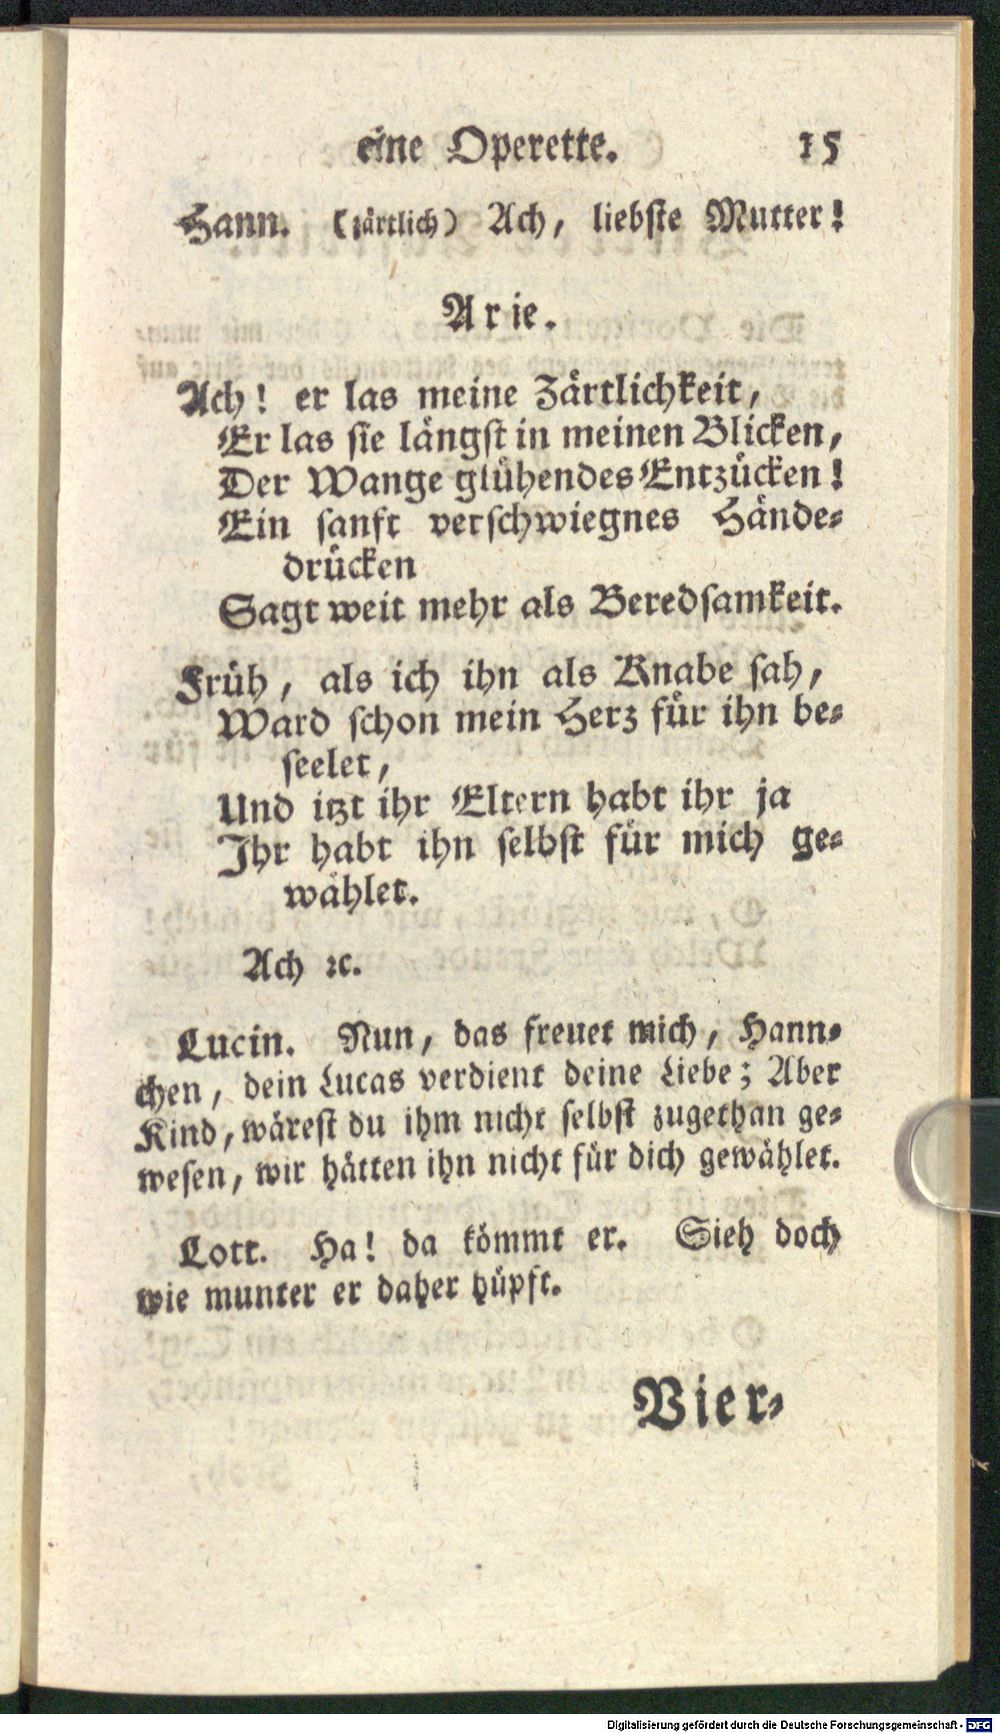 eine Operette. 15
Hann. (zärtlich) Ach, liebste Mutter!
Arie.
Ach! er las meine Zärtlichkeit,
Er las sie längst in meinen Blicken,
Der Wange glühendes Entzücken!
Ein sanft verschwiegnes Hände-
drücken
Sagt weit mehr als Beredsamkeit.
Früh, als ich ihn als Knabe sah,
Ward schon mein Herz für ihn be-
seelet,
Und itzt ihr Eltern habt ihr ja
Ihr habt ihn selbst für mich ge-
wählet.
Ach ꝛc.
Lucin. Nun, das freuet mich, Hann-
chen, dein Lucas verdient deine Liebe; Aber
Kind, wärest du ihm nicht selbst zugethan ge-
wesen, wir hätten ihn nicht für dich gewählet.
Lott. Ha! da kömmt er. Sieh doch
wie munter er daher hüpft.
Vier-
Digitalisierung gefördert durch die Deutsche Forschungsgemeinschaft - DFG